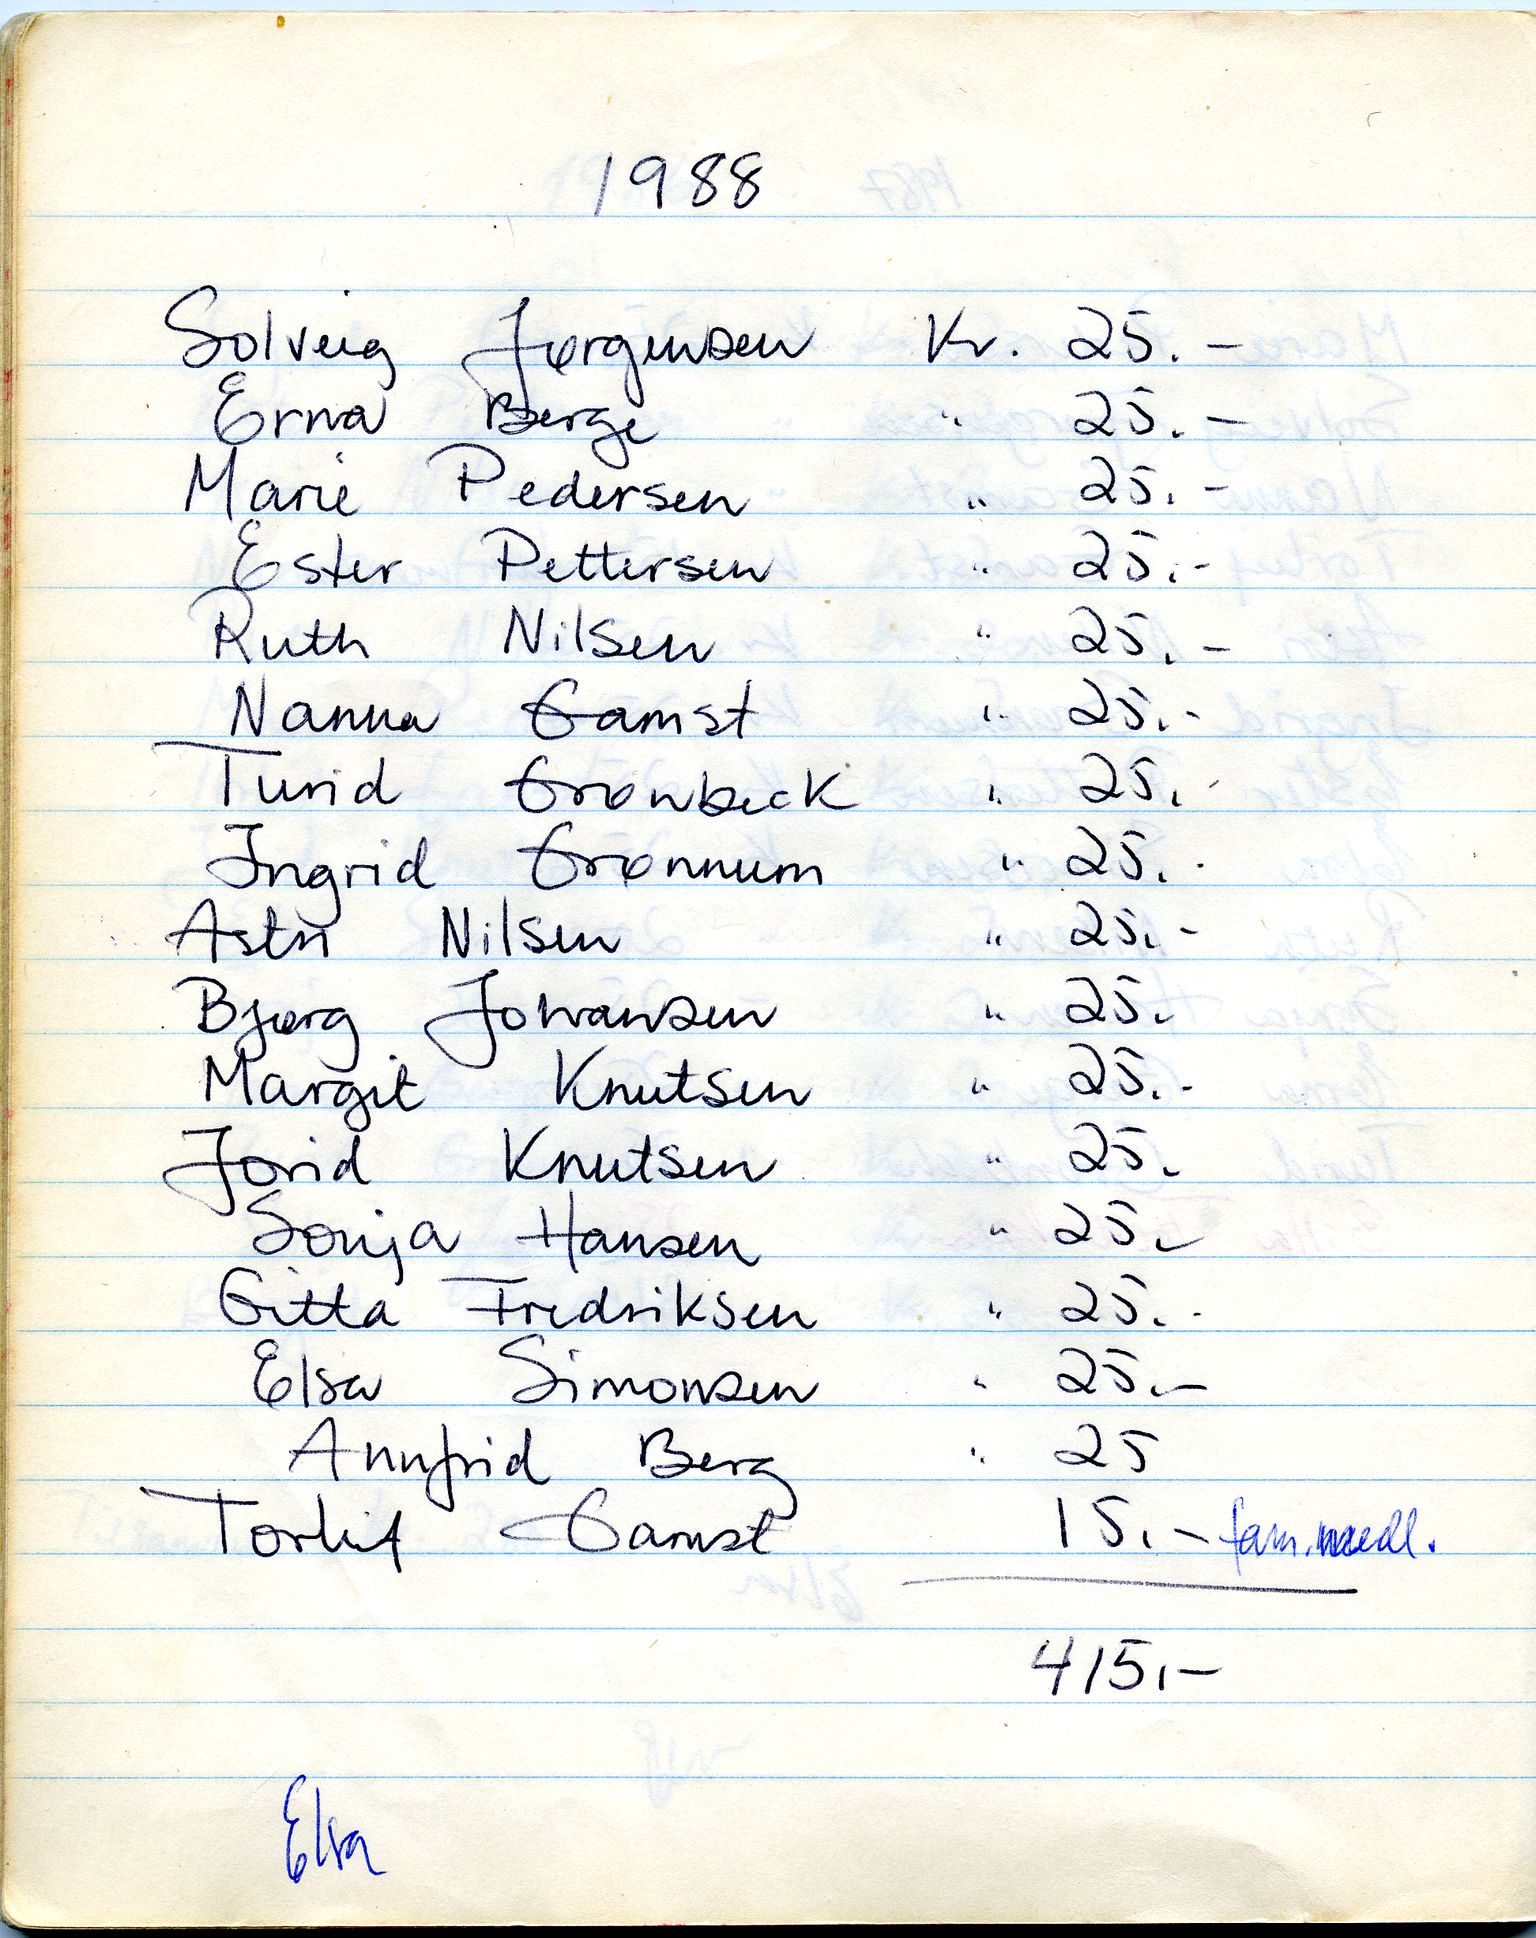 1988
Solveig Jørgensen Kr. 25.-
Erna Berge " 25.-
Marie Pedersen " 25.-
Ester Pettersen " 25.-
Ruth Nilsen " 25.-
Nanna Gamst " 25.-
Turid Grønbeck " 25.-
Ingrid Grønnum " 25.-
Astri Nilsen " 25.-
Bjørg Johansen " 25.
Margit Knutsen " 25.-
Jorid Knutsen " 25.
Sonja Hansen " 25.-
Gitta Fredriksen " 25.-
Elsa Simonsen " 25.-
Annfrid Berg " 25
Torleif Gamst 15.- fam.medl.
415,-
Elsa